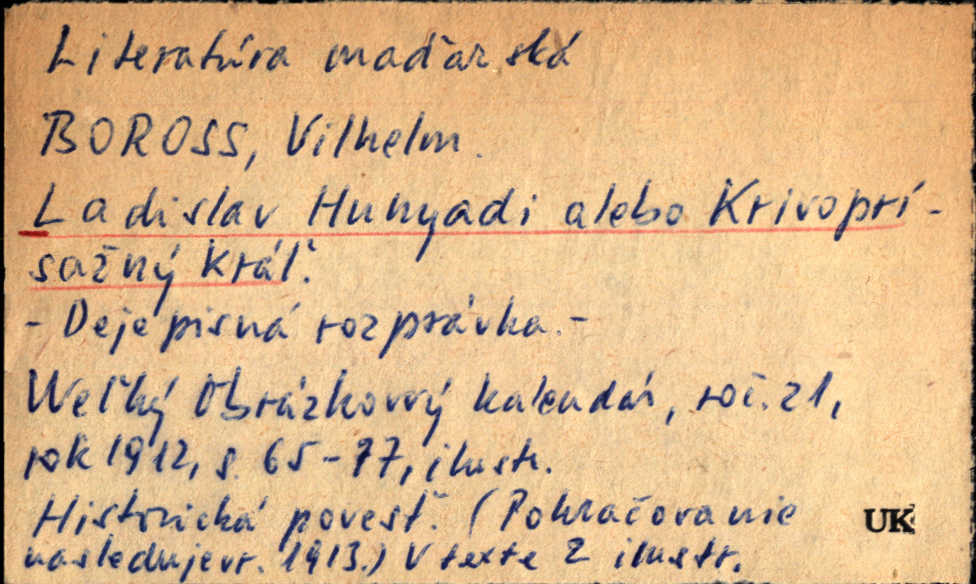 Literatúra maďarská
BOROSS, Vilhelm.
Ladislav Hunyadi alebo Krivoprí-
sažný kráľ.
- Dejepisná rozprávka. -
Weľký Obrázkovvý kalendár, roč. 21,
rok 1912, s. 65-77, ilustr.
Historická povesť. (Pokračovanie
nasledujevr. 1913.) V texte 2 ilustr.
UK